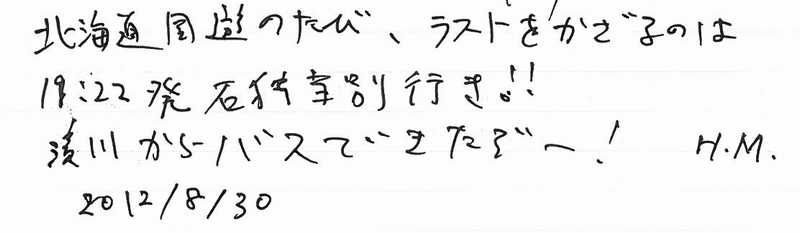 北海道周遊のたび、ラストをかざるのは
19:22発 石狩当別行き!!
滝川からバスできたぞ〜! H.M.
2012/8/30